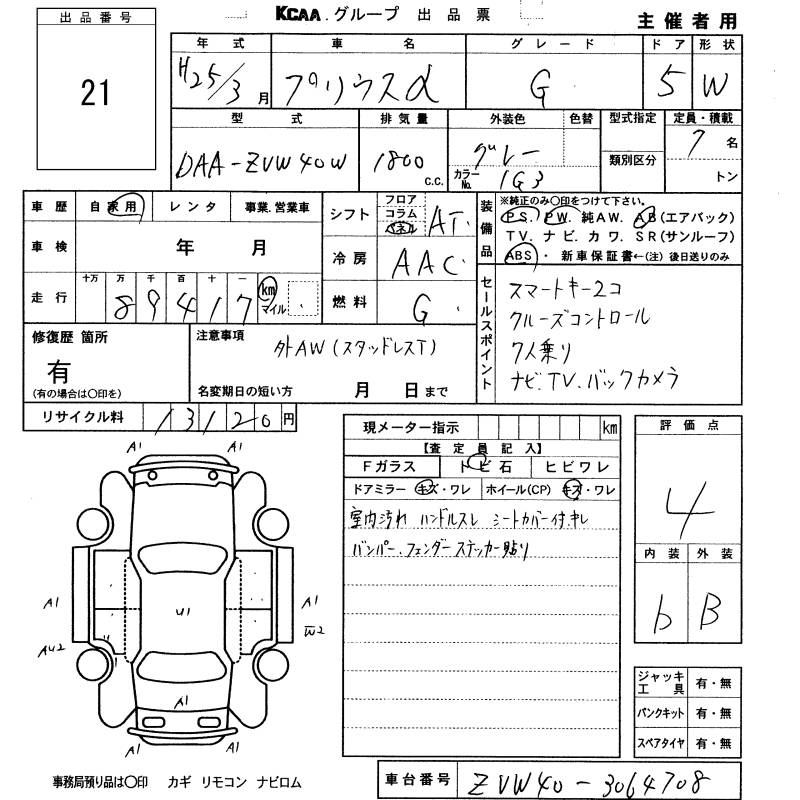 KCAA.グループ 出品票
主催者用
出品番号
21
年式 車名 グレード ドア 形状
H25/3月 プリウスα G 5 W
型式 排気量 外装色 色替 型式指定 定員・積載
DAA-ZVW40W 1800 c.c. グレー カラーNo. 1G3 類別区分 7名
トン
車歴 自家用 レンタ 事業.営業車
車検 年 月
十万 万 千 百 十 一
走行 89417 km マイル
シフト フロア コラム パネル AT
冷房 AAC
燃料 G
装備品
※純正のみ〇印をつけて下さい。
P.S. P.W. 純A.W. A.B(エアバック)
T.V. ナビ. カワ. S.R(サンルーフ)
ABS ・ 新車保証書←(注) 後日送りのみ
セールスポイント
スマートキー2コ
クルーズコントロール
7人乗り
ナビ.TV.バックカメラ
修復歴 箇所
有
(有の場合は〇印を)
注意事項
外AW(スタッドレスT)
名変期日の短い方 月 日まで
リサイクル料 13120円
現メーター指示 km
【査定員記入】
Fガラス トビ石 ヒビワレ
ドアミラー キズ・ワレ ホイール(CP) キズ・ワレ
室内汚れ ハンドルスレ シートカバー付.キレ
バンパー.フェンダーステッカー貼り
評価点
4
内装 外装
b B
A1 A1
A1
AU2
U1
A1
W2
A1
A1 A1
ジャッキ工具 有・無
パンクキット 有・無
スペアタイヤ 有・無
事務局預り品は〇印 カギ リモコン ナビロム
車台番号 ZVW40-3064708